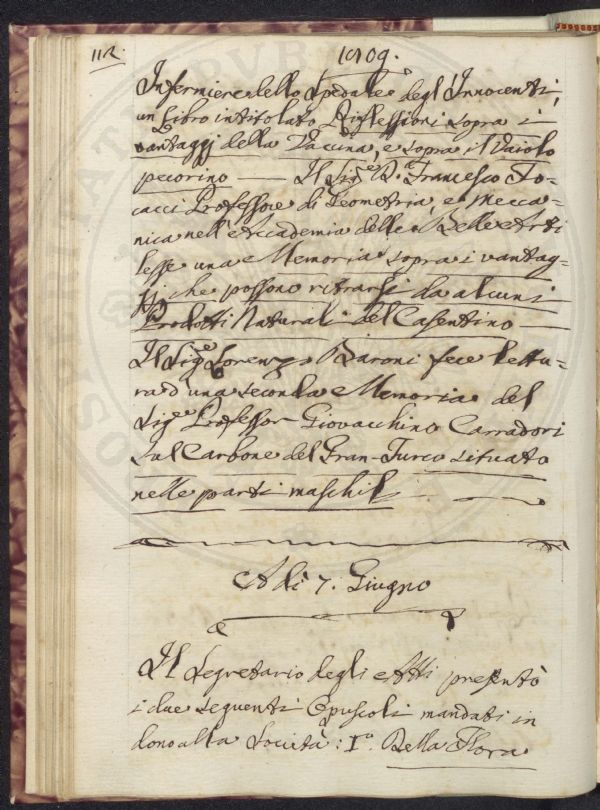 112.
1809.
Infermiere dello Spedale degl'Innocenti,
un Libro intitolato Riflessioni sopra i
vantaggj della Vaccina, e sopra il Vaiolo
pecorino — Il Sig.e D.r Francesco Fo-
cacci Professore di Geometria, e Mecca-
nica nell'Accademia delle Belle Arti
lesse una Memoria sopra i vantag-
gj che possono ritrarsi da alcuni
Prodotti Naturali del Casentino —
Il Sig.e Lorenzo Baroni fece lettu-
ra d'una seconda Memoria del
Sig.e Professor Giovacchino Carradori
sul Carbone del Gran-Turco situato
nelle parti maschili
A dì 7. Giugno
Il Segretario degli Atti presentò
i due seguenti Opuscoli mandati in
dono alla Società: I.o Della Flora